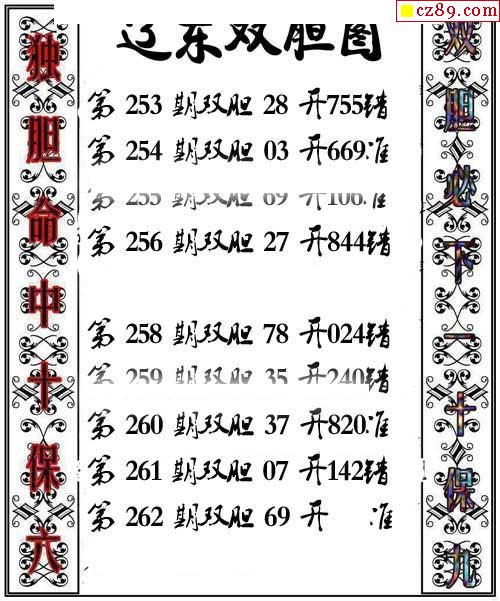 cz89.com
辽东双胆图
独胆命中十保六
第 253 期双胆 28 开755错
第 254 期双胆 03 开669准
第 255 期双胆 69 开106准
第 256 期双胆 27 开844错
第 258 期双胆 78 开024错
第 259 期双胆 35 开240错
第 260 期双胆 37 开820准
第 261 期双胆 07 开142错
第 262 期双胆 69 开 准
双胆必下一十保九